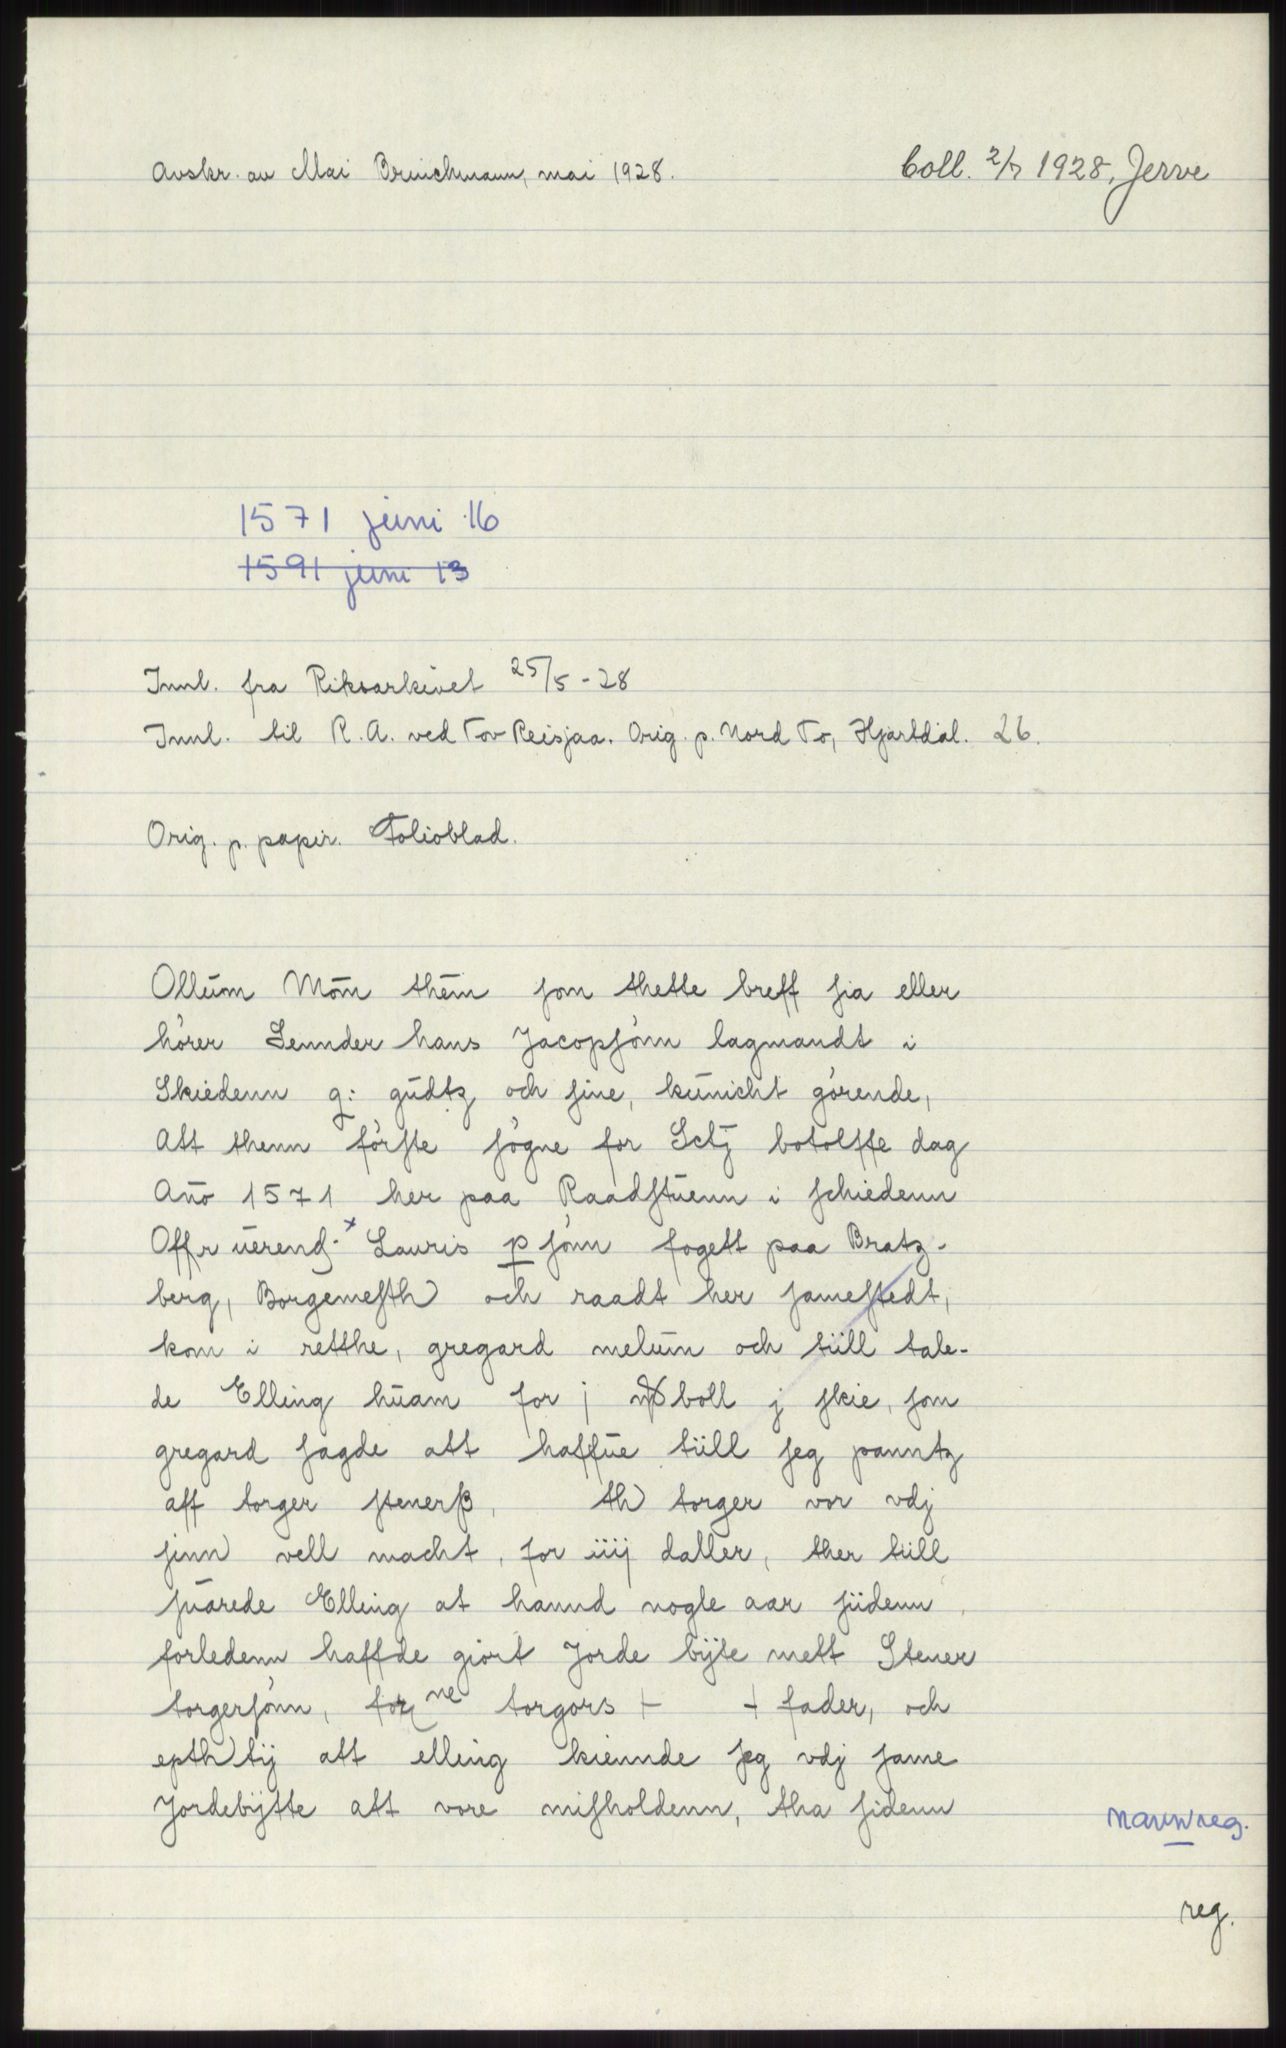 Avskr. av Mai Breuichmann, mai 1928.
Coll. 2/7 1928, Jerve
1571 juni 16
1591 juni 13
Innl. fra Riksarkivet 25/5-28
Innl. til R.A. ved Tov Reisjaa. Orig. p. Nord Bø, Hjartdal. 26.
Orig. p. papir. Folioblad.
Ollum Mōm thēm som thette breff sia eller
hórer Sennder hans Jacopsónn lagmandt i
Skiedenn q: gudtz och sine, kunicht górende,
Att thenn fórste sógne for Sctj botolffe dag
Año 1571 her paa Raadstuenn i schiedenn
Offr uerends x Lauris p sónn fogett paa Bratz-
berg, Borgemesth och raadt her samestedt,
kom i retthe, gregard melum och tiill tale-
de Elling huam for j boll j skie, som
gregard sagde att haffue tiill seg panntz
aff torger stenerß, th torger vor vdj
sinn vell macht, for iiij daller, ther tiill
suarede Elling at hannd nogle aar siidenn
forledenn haffde giort Jorde býte mett Stener
torgersónn, for ne torgors + + fader, och
epth tij att elling kiennde seg vdj same
Jordebýtte att vore misholdenn, tha sidenn
navnreg.
reg.